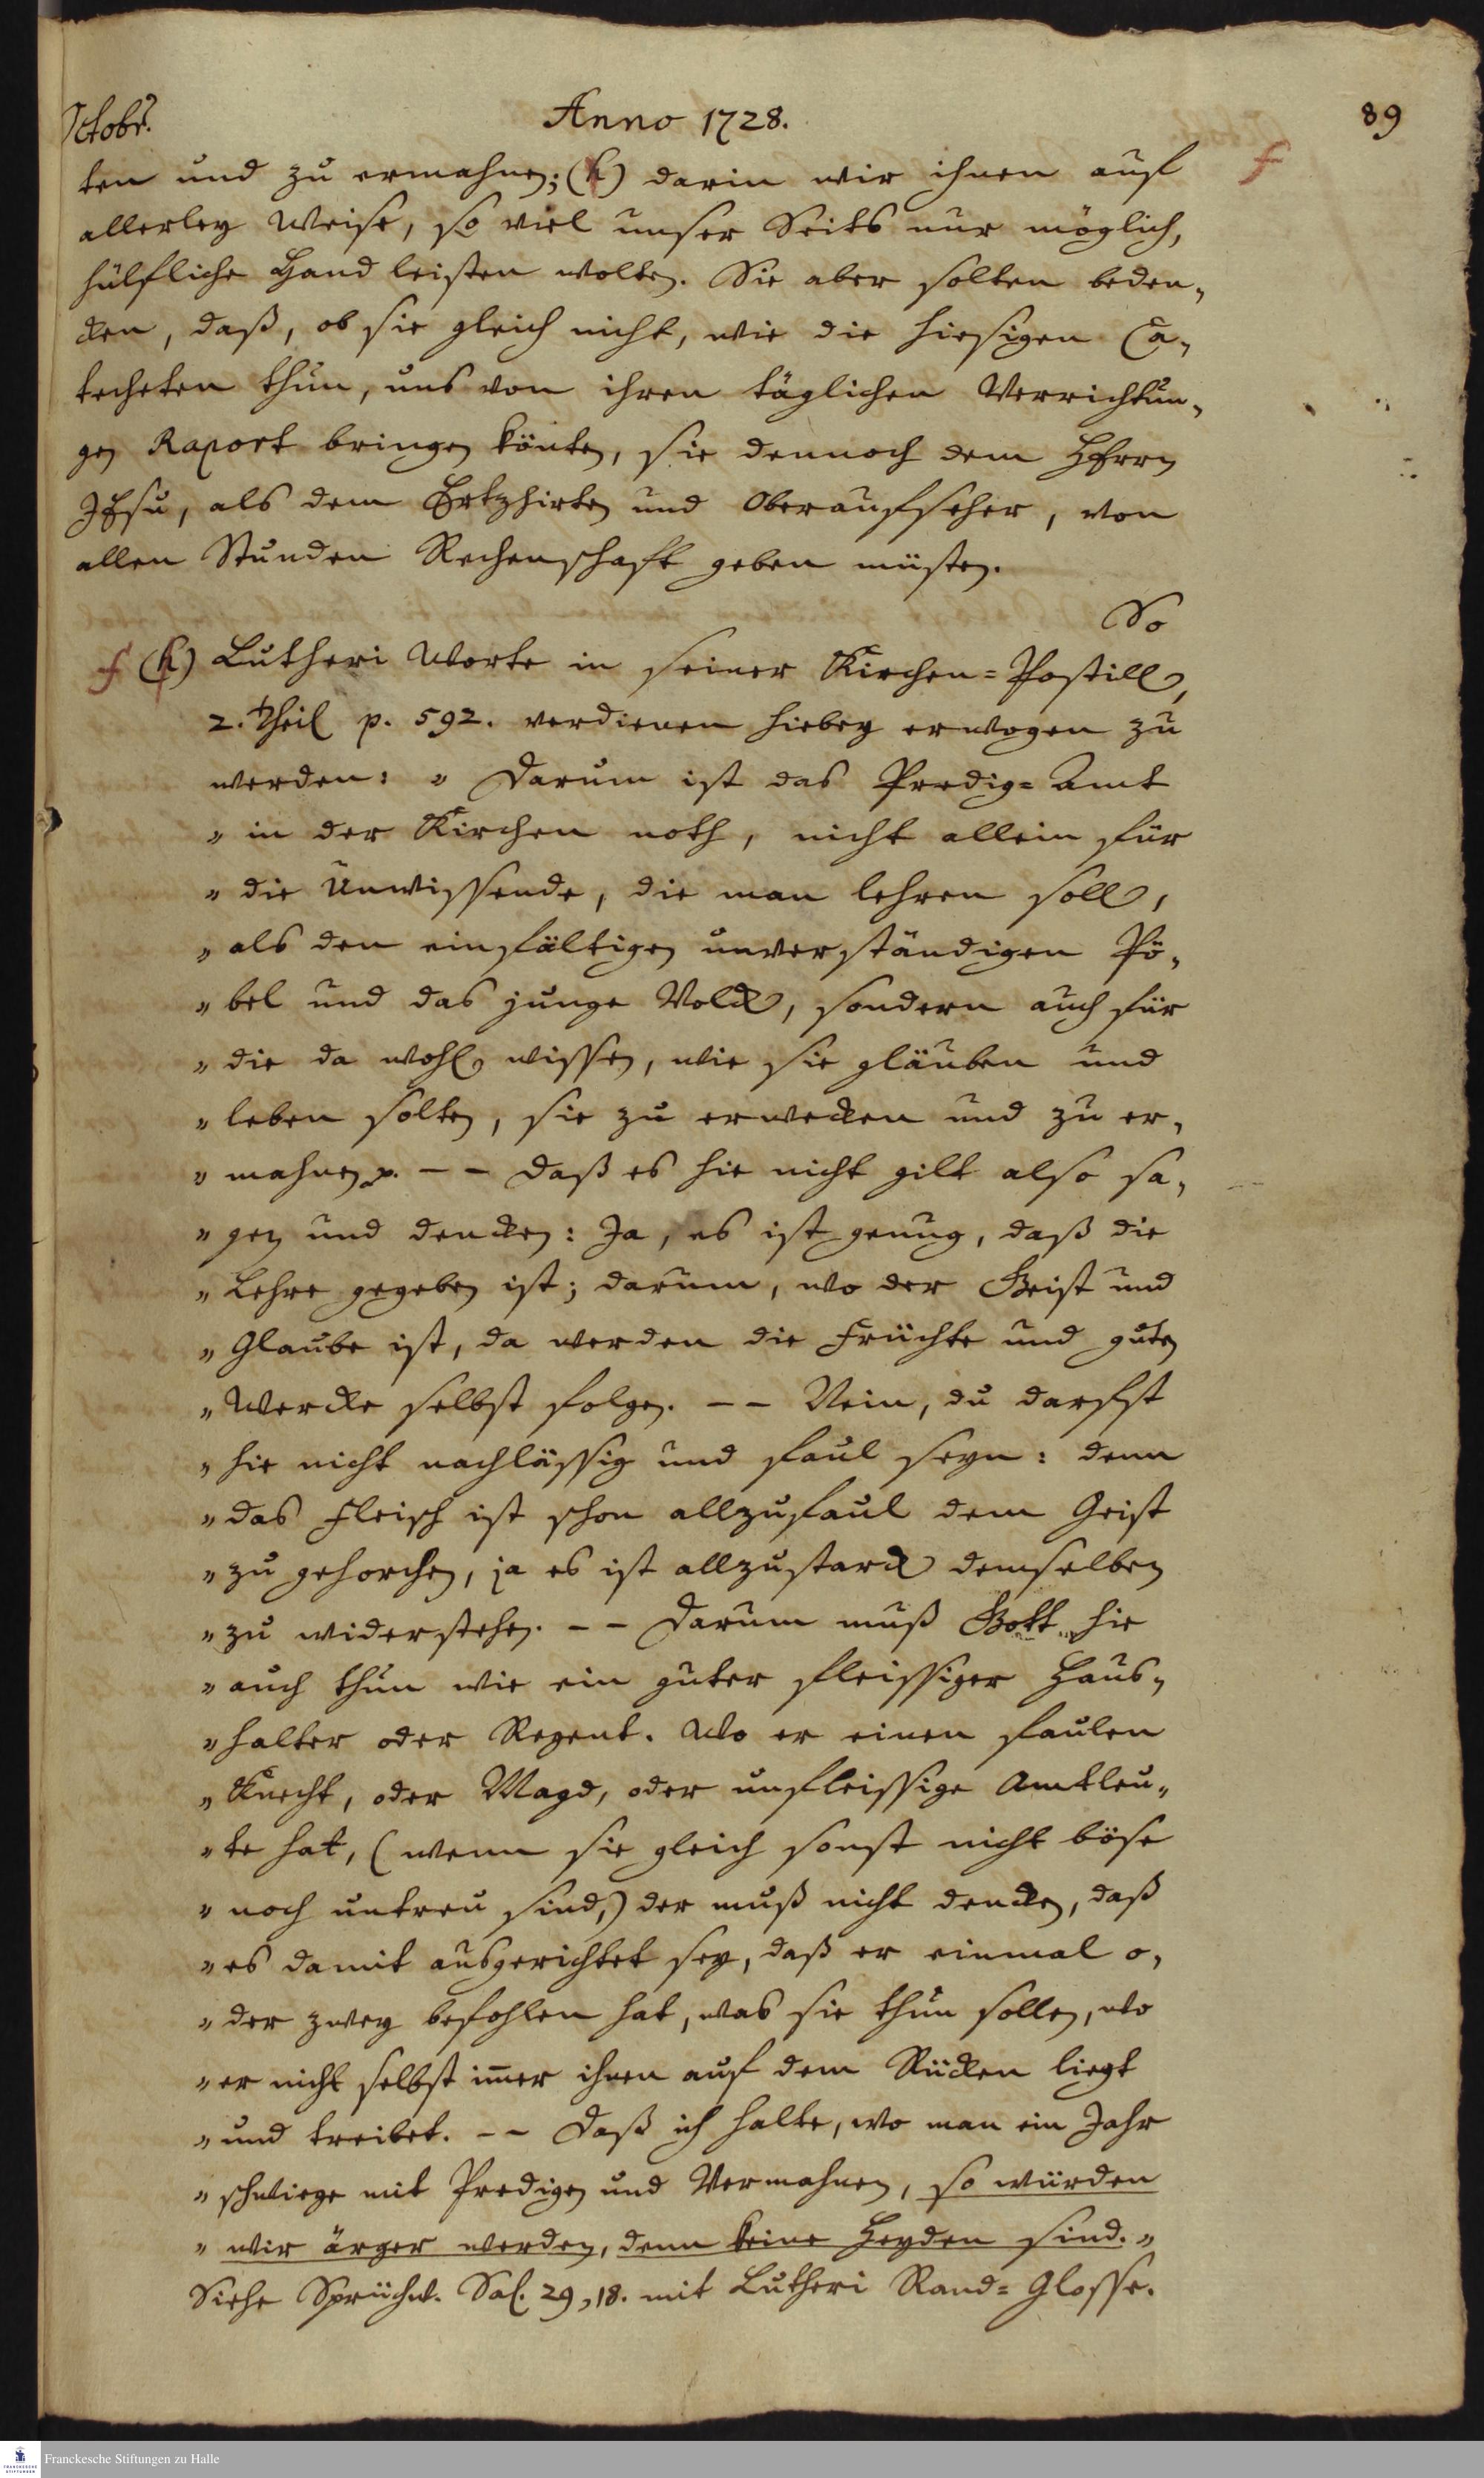 Octobr.
Anno 1728.
89
ten und zu ermahnen; (k) darin wir ihnen auf
f
allerley Weise, so viel unser Seits nur möglich,
hülfliche Hand leisten wolten. Sie aber solten beden-
cken, daß, ob sie gleich nicht, wie die hiesigen Ca-
techeten thun, uns von ihren täglichen Verrichtun-
gen Raport bringen könten, sie dennoch dem HErrn
JEsu, als dem Ertzhirten und Oberaufseher, von
allen Stunden Rechenschaft geben müsten.
So
f (k) Lutheri Worte in seiner Kirchen=Postill,
2. Theil p. 592. verdienen hiebey erwogen zu
werden: „ Darum ist das Predig=Amt
„ in der Kirchen noth, nicht allein für
„ die Unwissende, die man lehren soll,
„ als den einfältigen unverständigen Pö-
„ bel und das junge Volck, sondern auch für
„ die da wohl wissen, wie sie gläuben und
„ leben solten, sie zu erwecken und zu er-
„ mahnen p. – – daß es hie nicht gilt also sa-
„ gen und dencken: Ja, es ist genug, daß die
„ Lehre gegeben ist; darum, wo der Geist und
„ Glaube ist, da werden die Früchte und guten
„ Wercke selbst folgen. – – Nein, du darfst
„ hie nicht nachlässig und faul seyn: denn
„ das Fleisch ist schon allzufaul dem Geist
„ zu gehorchen, ja es ist allzustarck demselben
„ zu widerstehen. – – Darum muß Gott hie
„ auch thun wie ein guter fleissiger Haus-
„ halter oder Regent. Wo er einen faulen
„ Knecht, oder Magd, oder unfleissige Amtleu-
„ te hat, (wenn sie gleich sonst nicht böse
„ noch untreu sind,) der muß nicht dencken, daß
„ es damit ausgerichtet sey, daß er einmal o-
„ der zwey befohlen hat, was sie thun sollen, wo
„ er nicht selbst im̄er ihnen auf dem Rücken liegt
„ und treibet. – – Daß ich halte, wo man ein Jahr
„ schwiege mit Predigen und Vermahnen, so würden
„ wir ärger werden, denn keine Heyden sind. „
Siehe Sprüchw. Sal. 29, 18. mit Lutheri Rand=Glosse.
Franckesche Stiftungen zu Halle
FRANCKESCHE STIFTUNGEN